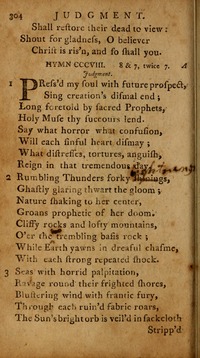 304 JUDGMENT.
Shall restore their dead to view :
Shout for gladness, O believer
Christ is ris'n, and so shall you.
HYMN CCCVIII. 8 & 7, twice 7. A
Judgment.
1 PRess'd my soul with future prospect,
Sing creation's dismal end ;
Long foretold by sacred Prophets,
Holy Muse thy succours lend.
Say what horror what confusion,
Will each sinful heart dismay ;
What distresses, tortures, anguish,
Reign in that tremendous day.
2 Rumbling Thunders forky
Ghastly glaring thwart the gloom ;
Nature shaking to her center,
Groans prophetic of her doom.
Cliffy rocks and lofty mountains,
O'er the trembling basis rock ;
While Earth yawns in dreadful chasms,
With each strong repeated shock.
3 Seas with horrid palpitation,
Ravage round their frighted shores,
Blustering wind with frantic fury,
Through each ruin'd fabric roars,
The Sun's bright orb is veil'd in sackcloth
Stripp'd